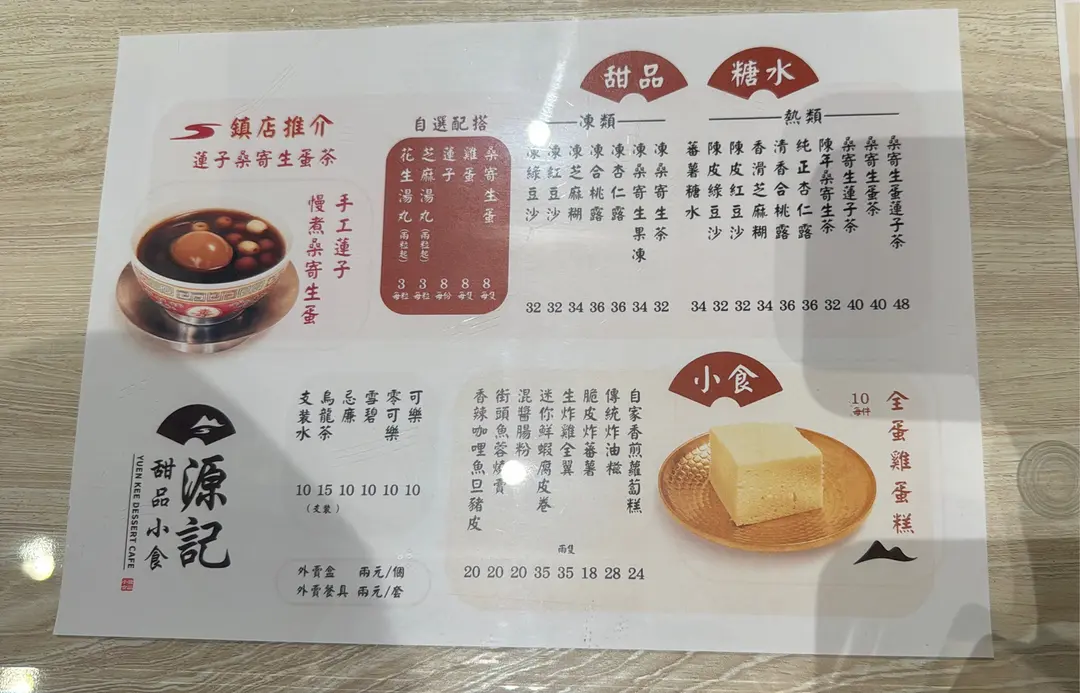 甜品
糖水
鎮店推介
蓮子桑寄生蛋茶
手工蓮子
慢煮桑寄生蛋
自選配搭
桑寄生蛋 8 每隻
雞蛋 8 每隻
蓮子 8 每份
芝麻湯丸(兩粒起) 3 每粒
花生湯丸(兩粒起) 3 每粒
凍類
凍桑寄生茶 32
凍桑寄生果凍 34
凍杏仁露 36
凍合桃露 36
凍芝麻糊 34
凍紅豆沙 32
凍綠豆沙 32
熱類
桑寄生蛋蓮子茶 48
桑寄生蛋茶 40
桑寄生蓮子茶 40
陳年桑寄生茶 32
純正杏仁露 36
清香合桃露 36
香滑芝麻糊 34
陳皮紅豆沙 32
陳皮綠豆沙 32
蕃薯糖水 34
源記
甜品小食
YUEN KEE DESSERT CAFE
可樂 10
零可樂 10
雪碧 10
忌廉 10
烏龍茶 15 (支裝)
支裝水 10
外賣盒 兩元/個
外賣餐具 兩元/套
小食
自家香煎蘿蔔糕 24
傳統炸油糍 28
脆皮炸蕃薯 18
生炸雞全翼 兩隻 35
迷你鮮蝦腐皮卷 35
混醬腸粉 20
街頭魚蓉燒賣 20
香辣咖哩魚旦豬皮 20
全蛋雞蛋糕
10 每件